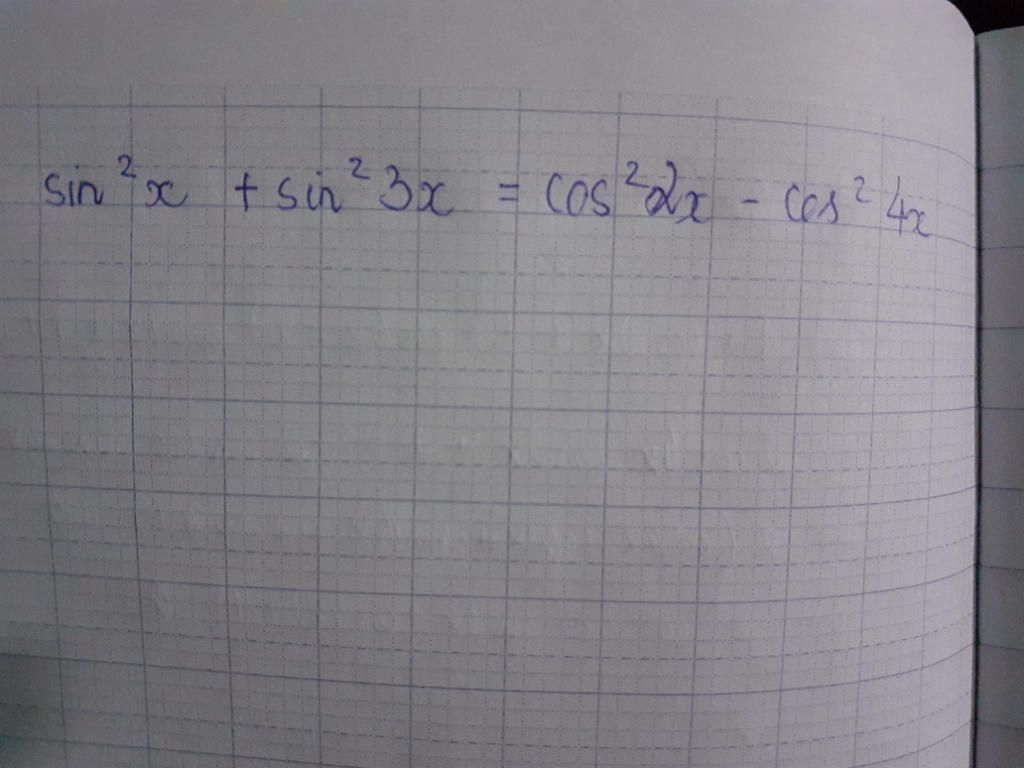 sin²x + sin²3x = cos²2x - cos²4x